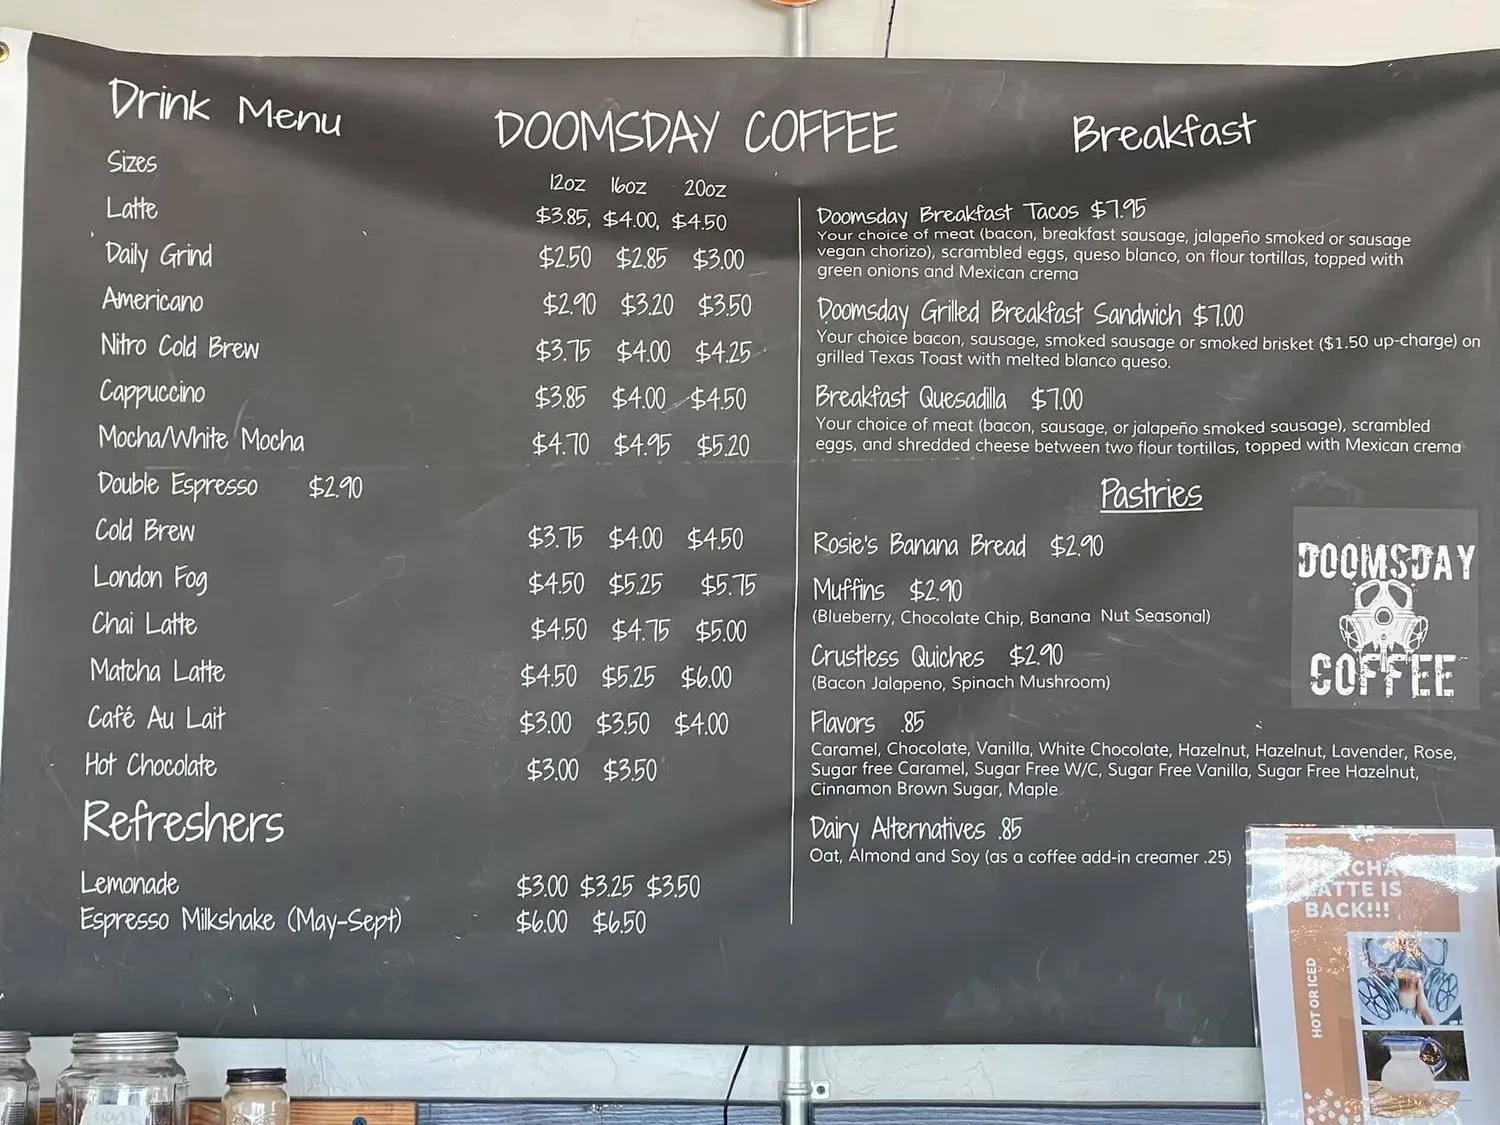 Drink Menu
DOOMSDAY COFFEE
Sizes
12oz 16oz 20oz
Latte $3.85, $4.00, $4.50
Daily Grind $2.50 $2.85 $3.00
Americano $2.90 $3.20 $3.50
Nitro Cold Brew $3.75 $4.00 $4.25
Cappuccino $3.85 $4.00 $4.50
Mocha/White Mocha $4.70 $4.95 $5.20
Double Espresso $2.90
Cold Brew $3.75 $4.00 $4.50
London Fog $4.50 $5.25 $5.75
Chai Latte $4.50 $4.75 $5.00
Matcha Latte $4.50 $5.25 $6.00
Café Au Lait $3.00 $3.50 $4.00
Hot Chocolate $3.00 $3.50
Refreshers
Lemonade $3.00 $3.25 $3.50
Espresso Milkshake (May-Sept) $6.00 $6.50
Breakfast
Doomsday Breakfast Tacos $7.95
Your choice of meat (bacon, breakfast sausage, jalapeño smoked or sausage
vegan chorizo), scrambled eggs, queso blanco, on flour tortillas, topped with
green onions and Mexican crema
Doomsday Grilled Breakfast Sandwich $7.00
Your choice bacon, sausage, smoked sausage or smoked brisket ($1.50 up-charge) on
grilled Texas Toast with melted blanco queso.
Breakfast Quesadilla $7.00
Your choice of meat (bacon, sausage, or jalapeño smoked sausage), scrambled
eggs, and shredded cheese between two flour tortillas, topped with Mexican crema
Pastries
Rosie's Banana Bread $2.90
Muffins $2.90
(Blueberry, Chocolate Chip, Banana Nut Seasonal)
Crustless Quiches $2.90
(Bacon Jalapeno, Spinach Mushroom)
Flavors .85
Caramel, Chocolate, Vanilla, White Chocolate, Hazelnut, Hazelnut, Lavender, Rose,
Sugar free Caramel, Sugar Free W/C, Sugar Free Vanilla, Sugar Free Hazelnut,
Cinnamon Brown Sugar, Maple
Dairy Alternatives .85
Oat, Almond and Soy (as a coffee add-in creamer .25)
DOOMSDAY
COFFEE
LATTE IS
BACK!!!
HOT OR ICED